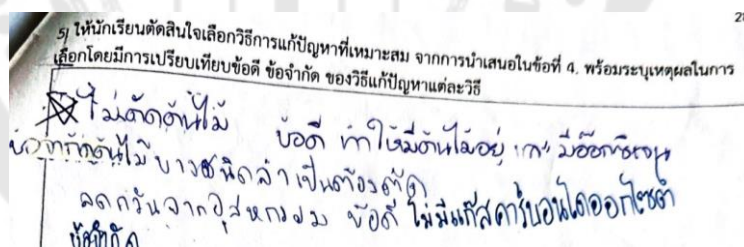 28
5) ให้นักเรียนตัดสินใจเลือกวิธีการแก้ปัญหาที่เหมาะสม จากการนำเสนอในข้อที่ 4. พร้อมระบุเหตุผลในการ
เลือกโดยมีการเปรียบเทียบข้อดี ข้อจำกัด ของวิธีแก้ปัญหาแต่ละวิธี
ไม่ตัดต้นไม้ ข้อดี ทำให้มีต้นไม้อยู่ และ มีอ๊อกซิเจน
ข้อจำกัดต้นไม้บางชนิดจำเป็นต้องตัด
ลดควันจากอุสหกรรม ข้อดี ไม่มีแก๊สคาร์บอนไดออกไซด์
ข้อจำกัด